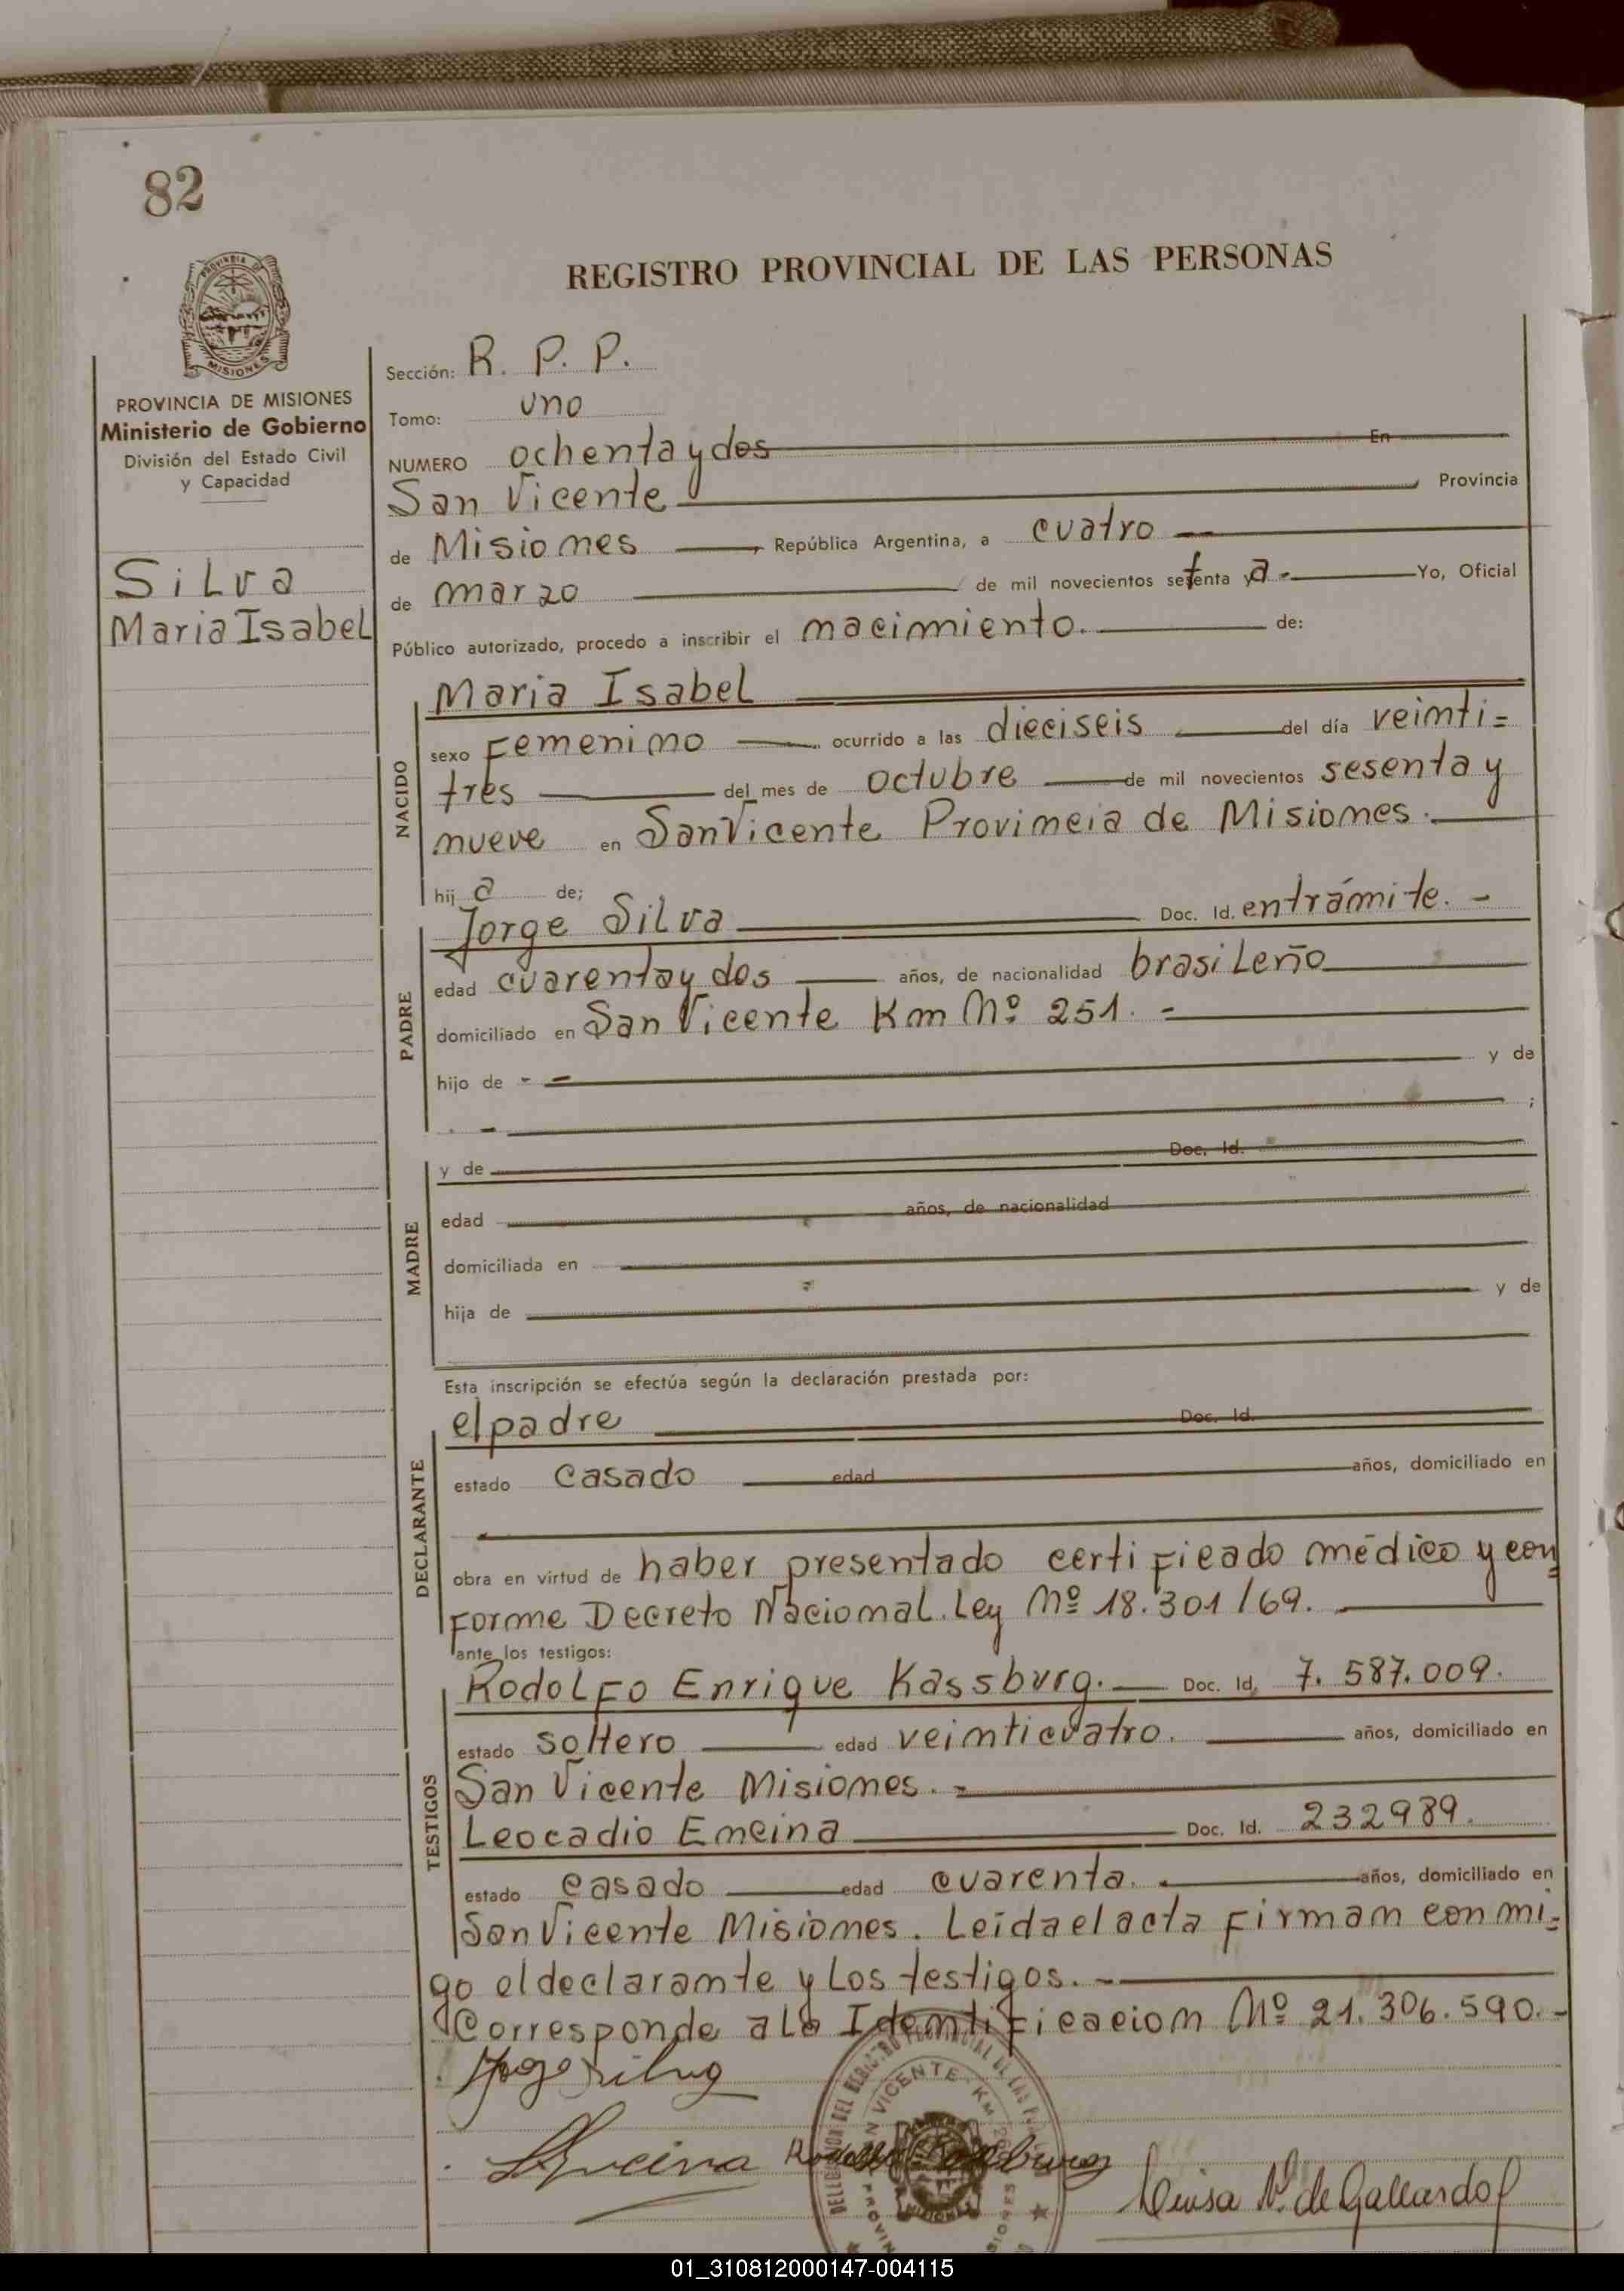 82
REGISTRO PROVINCIAL DE LAS PERSONAS
MISIONES
PROVINCIA DE MISIONES
Ministerio de Gobierno
División del Estado Civil
y Capacidad
Silva
Maria Isabel
Sección: R. P. P.
Tomo: uno
NUMERO ochenta y dos En
San Vicente Provincia
de Misiones, República Argentina, a cuatro
de marzo de mil novecientos setenta y a Yo, Oficial
Público autorizado, procedo a inscribir el nacimiento. de:
NACIDO
Maria Isabel
sexo Femenino ocurrido a las dieciseis del día veinti=
tres del mes de octubre de mil novecientos sesenta y
nueve en San Vicente Provincia de Misiones.
hij a de;
PADRE
Jorge Silva Doc. Id. entrámite. -
edad cuarenta y dos años, de nacionalidad brasileño
domiciliado en San Vicente Km Nº 251. =
hijo de - - y de
;
MADRE
y de Doc. Id.
edad años, de nacionalidad
domiciliada en
hija de y de
Esta inscripción se efectúa según la declaración prestada por:
DECLARANTE
el padre Doc. Id.
estado casado edad años, domiciliado en
obra en virtud de haber presentado certificado médico y con=
forme Decreto Nacional. Ley Nº 18.301/69.
ante los testigos:
TESTIGOS
Rodolfo Enrique Kassburg. Doc. Id. 7.587.009.
estado soltero edad veinticuatro. años, domiciliado en
San Vicente Misiones. =
Leocadio Encina Doc. Id. 232989.
estado casado edad cuarenta. años, domiciliado en
San Vicente Misiones. Leida el acta firman con mi=
go el declarante y los testigos. -
Corresponde a la Identificacion Nº 21.306.590. -
Jorge Silva
SAN VICENTE - KM
Luisa N. de Gallardo
01_310812000147-004115